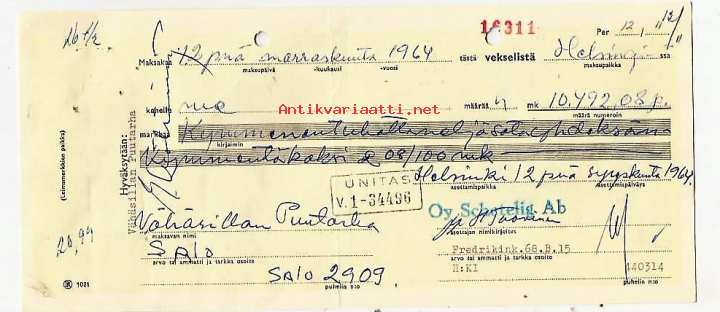 26 1/2
16311
Per 12/12
Maksakaa 12 pnä marraskuuta 1964 tästä vekselistä Helsingissä
maksupäivä -kuukausi -vuosi maksupaikka
kenelle me määrää n mk 10.492,08 p.
Antikvariaatti.net
määrä numeroin
markkaa Kymmenentuhattaneljäsataayhdeksän-
kirjaimin
kymmentäkaksi & 08/100 mk
Helsinki 12 pnä syyskuuta 1964.
asettamispaikka asettamispäiväys
UNITAS
V.1-34496
Oy Schetelig Ab
Vähäsillan Puutarha
maksavan nimi
asettajan nimikirjoitus
SALO
arvo tai ammatti ja tarkka osoite
Fredrikink.68.B.15
arvo tai ammatti ja tarkka osoite
H:KI 440314
SALO 2909
puhelin n:o
puhelin n:o
(Leimamerkkien paikka)
Hyväksytään:
Vähäsillan Puutarha
20,99
1021